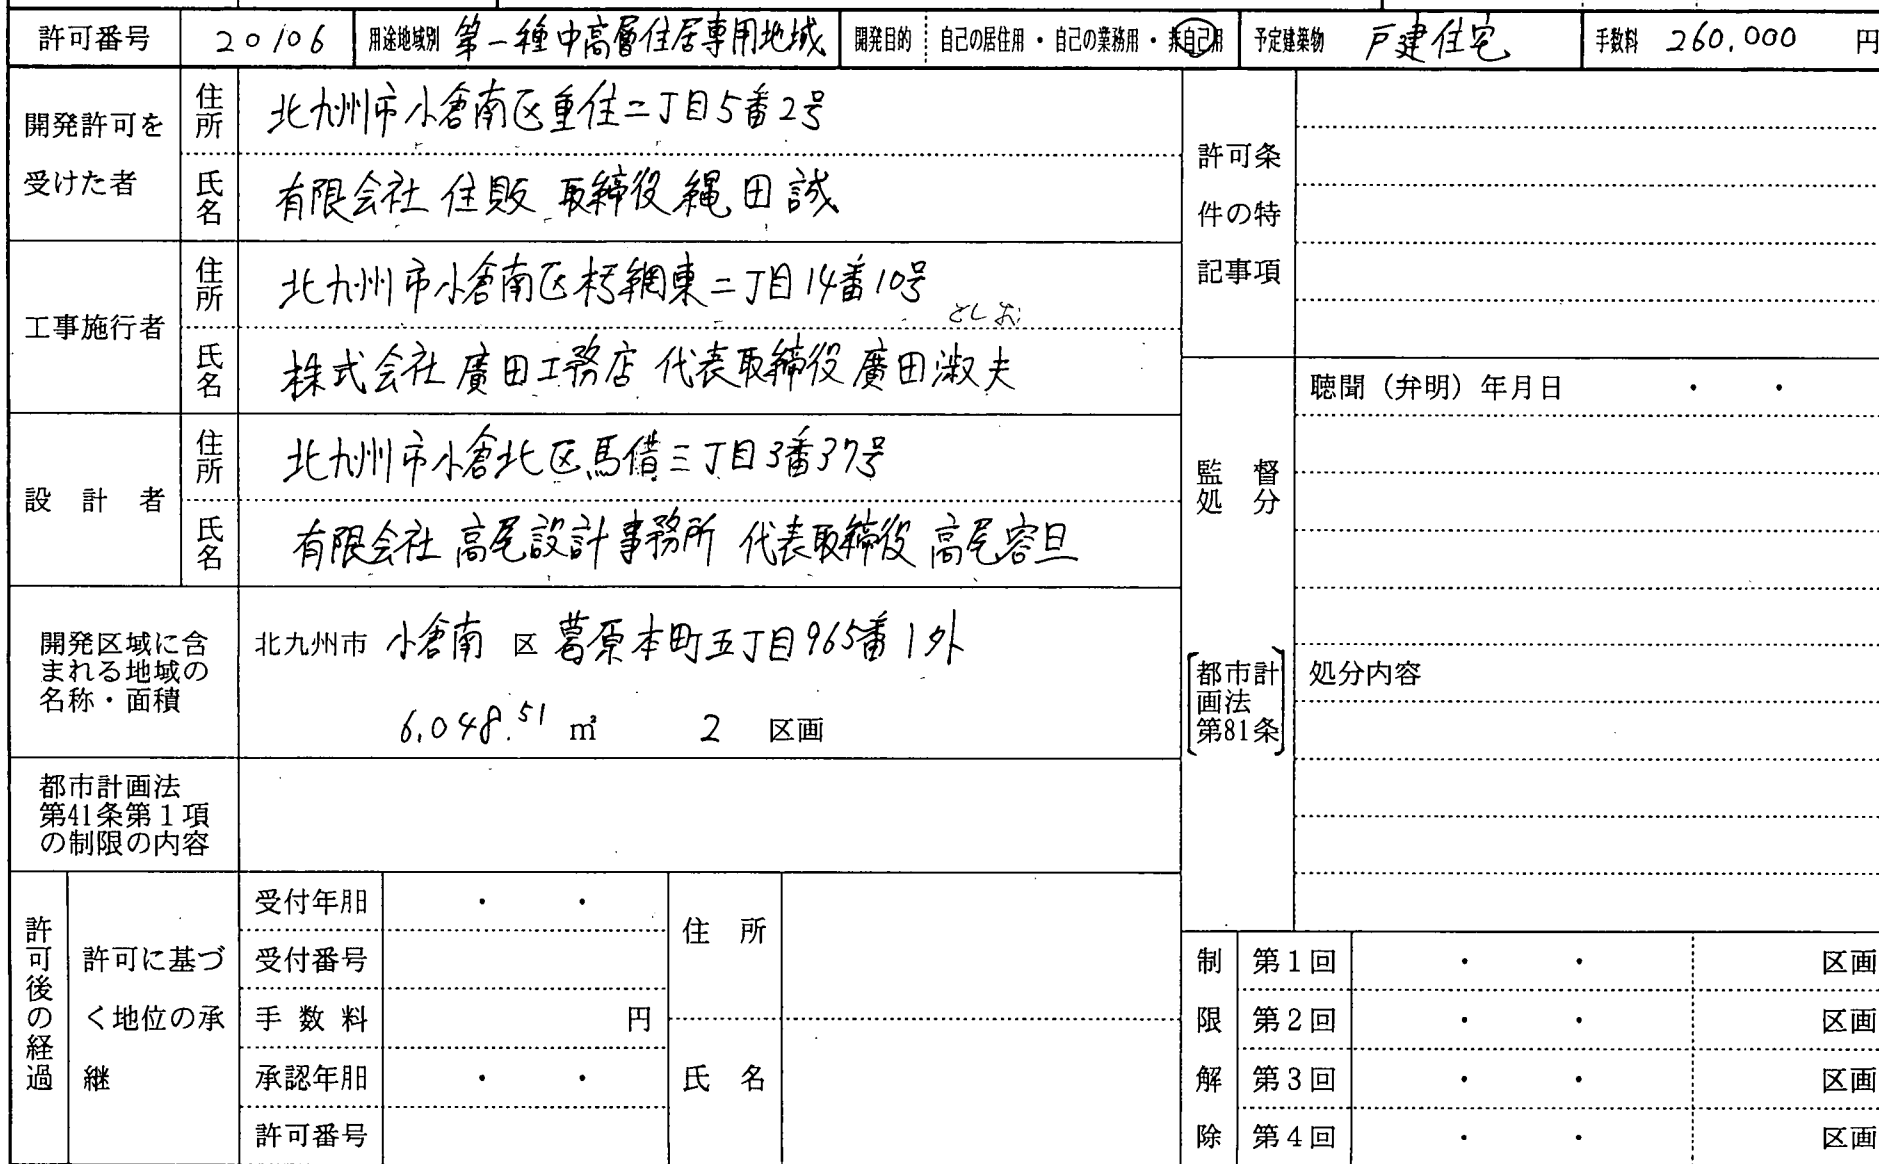 許可番号 20106 用途地域別 第一種中高層住居専用地域 開発目的 自己の居住用・自己の業務用・非自己用 予定建築物 戸建住宅 手数料 260,000 円
開発許可を受けた者
住所 北九州市小倉南区重住二丁目5番2号
氏名 有限会社 住販 取締役 縄田 誠
工事施行者
住所 北九州市小倉南区朽網東二丁目14番10号
としお
氏名 株式会社 廣田工務店 代表取締役 廣田淑夫
設計者
住所 北九州市小倉北区馬借三丁目3番37号
氏名 有限会社 高尾設計事務所 代表取締役 高尾容旦
開発区域に含まれる地域の名称・面積
北九州市 小倉南 区 葛原本町五丁目965番1外
6,048.51 ㎡ 2 区画
都市計画法第41条第1項の制限の内容
許可後の経過
許可に基づく地位の承継
受付年月日 ・ ・
受付番号
手数料 円
承認年月日 ・ ・
許可番号
住所
氏名
許可条件の特記事項
監督処分
[都市計画法第81条]
聴聞(弁明)年月日 ・ ・
処分内容
制限解除
第1回 ・ ・ 区画
第2回 ・ ・ 区画
第3回 ・ ・ 区画
第4回 ・ ・ 区画